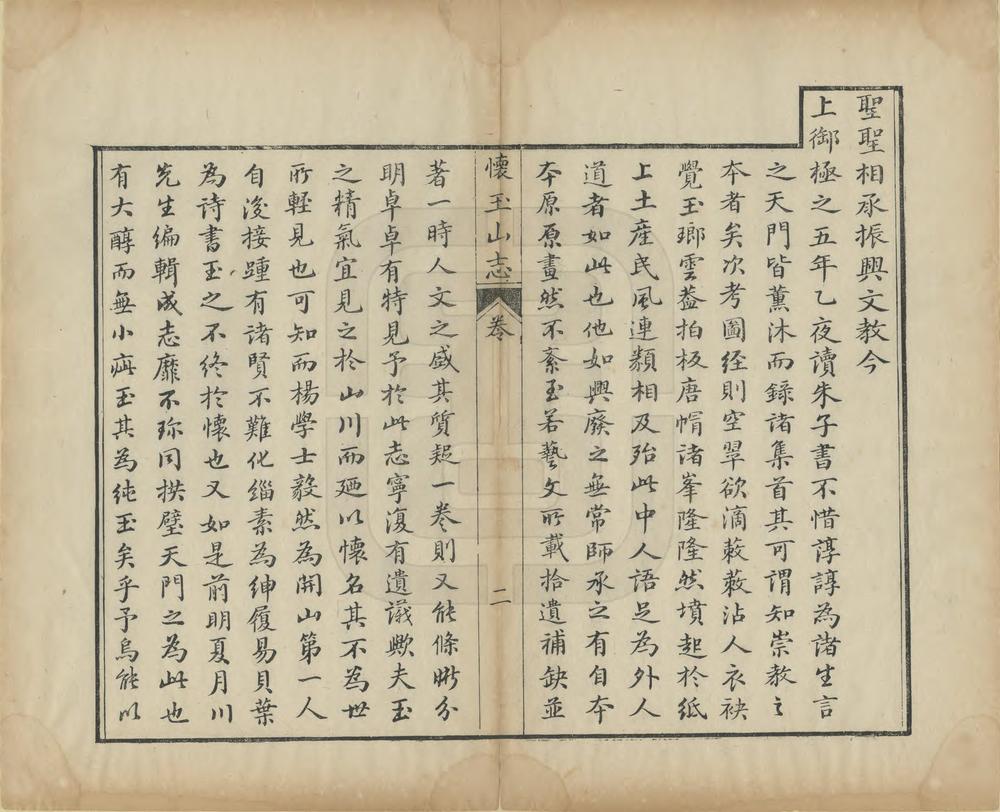 聖聖相承振興文教今
上御極之五年乙夜讀朱子書不惜諄諄為諸生言
之天門皆薰沐而錄諸集首其可謂知崇教之
夲者矣次考圖經則空翠欲滴蔌蔌沾人衣袂
覺玉瑯雲葢拍板唐帽諸峯隆隆然墳起於紙
上土產民風連類相及殆此中人語足為外人
道者如此也他如興廢之無常師承之有自夲
夲原原畫然不紊至若藝文所載拾遺補缺並
懷玉山志
卷
二
著一時人文之盛其質疑一卷則又能條晰分
明卓卓有特見予於此志寧復有遺議歟夫玉
之精氣宜見之於山川而廼以懷名其不為世
所輕見也可知而楊學士毅然為開山第一人
自後接踵有諸賢不難化緇素為紳履易貝葉
為詩書玉之不終於懷也又如是前明夏月川
先生編輯成志靡不珎同拱璧天門之為此也
有大醇而無小疵玉其為純玉矣乎予烏能以